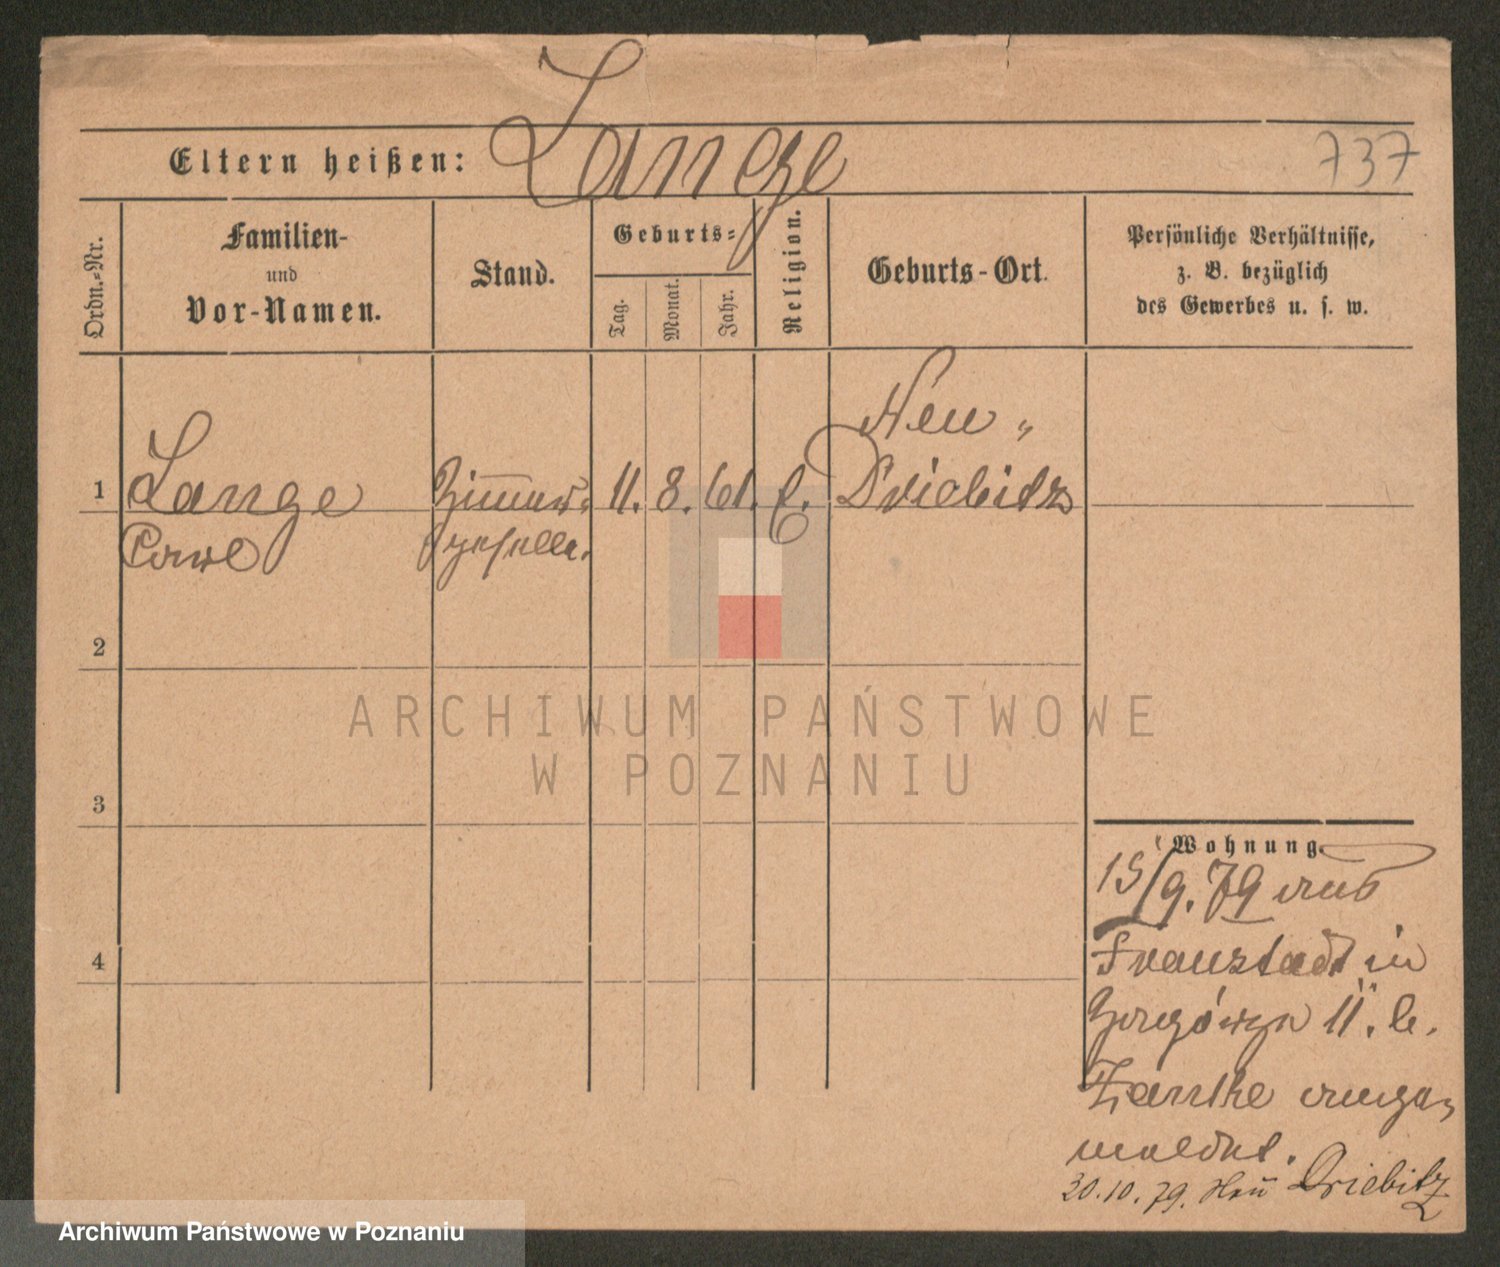 Lange
Eltern heißen:
737
Ordn.-Nr.
Familien-
und
Vor-Namen.
Stand.
Geburts-
Tag.
Monat.
Jahr.
Religion.
Geburts-Ort.
Persönliche Verhältnisse,
z. B. bezüglich
des Gewerbes u. s. w.
Neu-
1 Lange Zimmer- 11. 8. 61. Driebitz
Paul geselle.
2
3
4
Wohnung.
15/9. 79 aus
Fraustadt in
11. b.
ange-
meldet.
20.10.79. Driebitz
ARCHIWUM PAŃSTWOWE
W POZNANIU
Archiwum Państwowe w Poznaniu